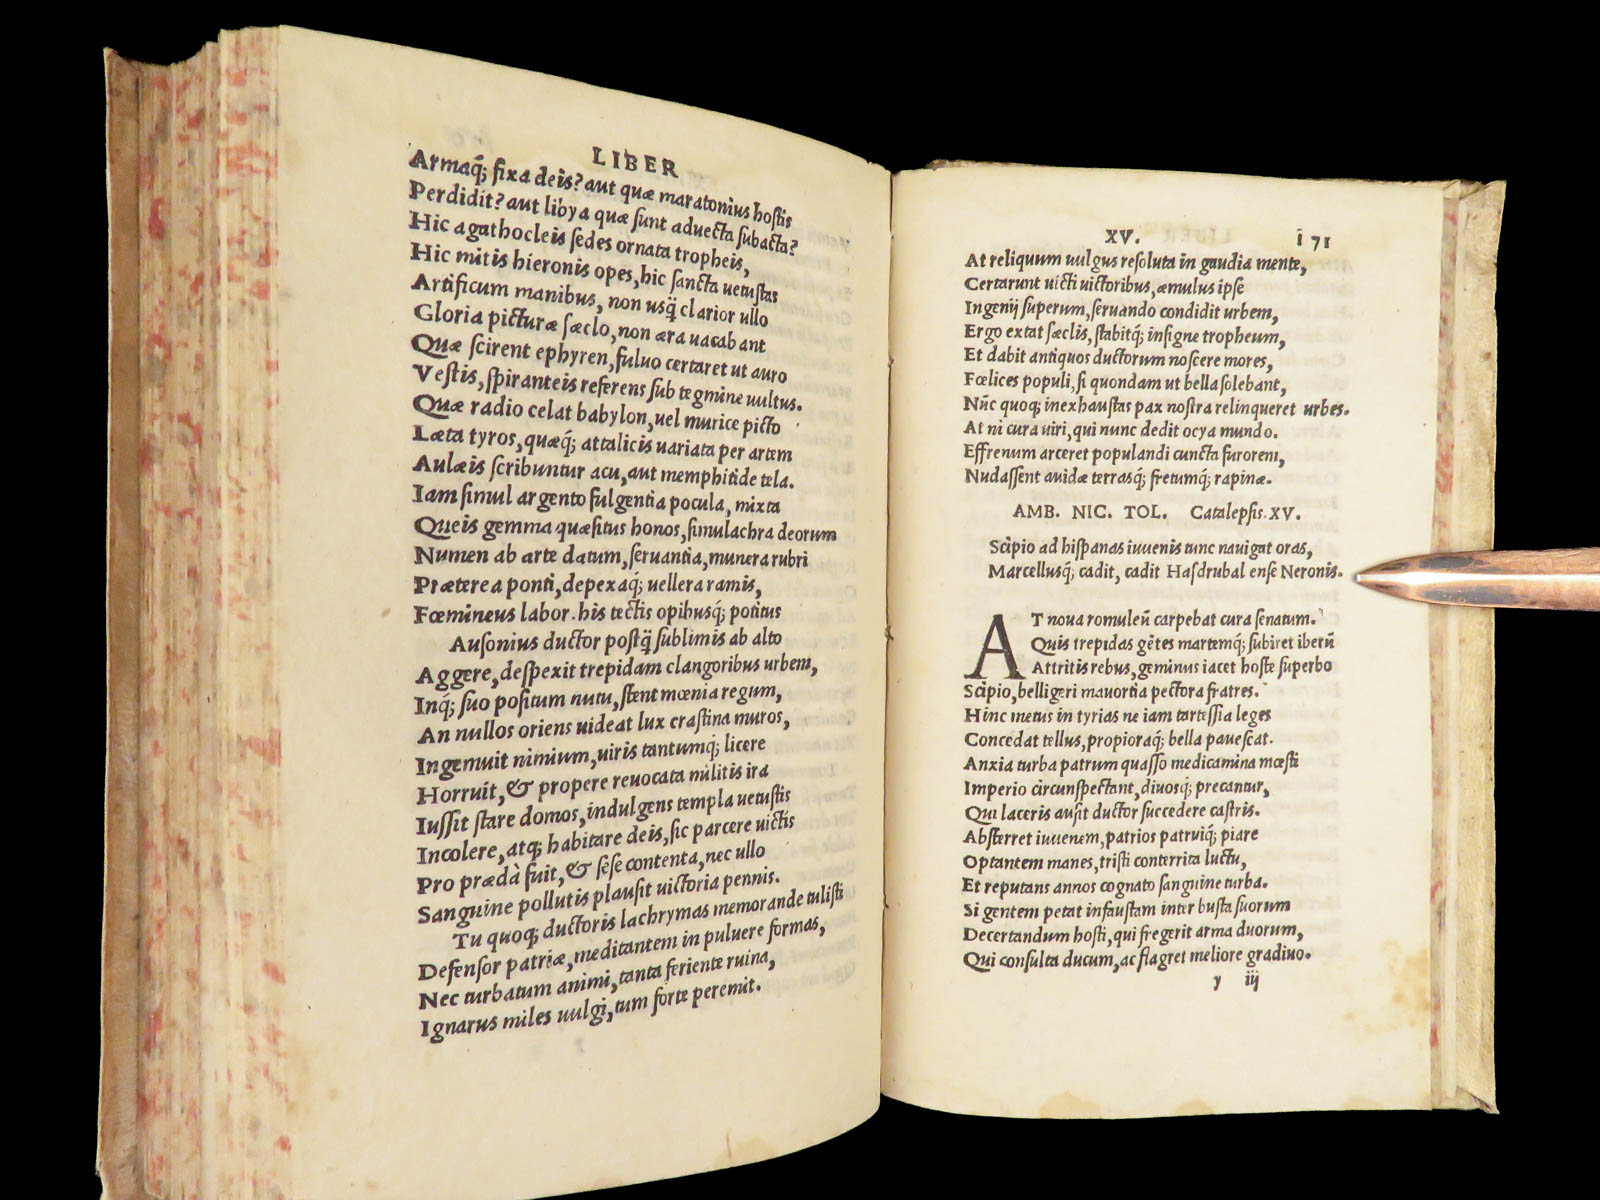 LIBER
Armaq; fixa deis? aut quæ maratonius hostis
Perdidit? aut libya quæ sunt aduecta subacta?
Hic agathocleis sedes ornata tropheis,
Hic mitis hieronis opes, hic sancta uetustas
Artificum manibus, non usq̃ clarior ullo
Gloria picturæ sæclo, non æra uacabant
Quæ scirent ephyren, fuluo certaret ut auro
Vestis, spiranteis referens sub tegmine uultus.
Quæ radio celat babylon, uel murice picto
Læta tyros, quæq; attalicis uariata per artem
Aulæis scribuntur acu, aut memphitide tela.
Iam simul argento fulgentia pocula, mixta
Queis gemma quæsitus honos, simulachra deorum
Numen ab arte datum, seruantia, munera rubri
Præterea ponti, depexaq; uellera ramis,
Fœmineus labor. his tectis opibusq; potitus
Ausonius ductor postq̃ sublimis ab alto
Aggere, despexit trepidam clangoribus urbem,
Inq; suo positum nutu, stent mœnia regum,
An nullos oriens uideat lux crastina muros,
Ingemuit nimium, uiris tantumq; licere
Horruit, & propere reuocata militis ira
Iussit stare domos, indulgens templa uetustis
Incolere, atq; habitare deis, sic parcere uictis
Pro præda fuit, & sese contenta, nec ullo
Sanguine pollutis plausit uictoria pennis.
Tu quoq; ductoris lachrymas memorande tulisti
Defensor patriæ, meditantem in puluere formas,
Nec turbatum animi, tanta feriente ruina,
Ignarus miles uulgi, tum forte peremit.
XV. 171
At reliquum uulgus resoluta in gaudia mente,
Certarunt uicti uictoribus, æmulus ipse
Ingenij superum, seruando condidit urbem,
Ergo extat sæclis, stabitq; insigne tropheum,
Et dabit antiquos ductorum noscere mores,
Fœlices populi, si quondam ut bella solebant,
Nũc quoq; inexhaustas pax nostra relinqueret urbes.
At ni cura uiri, qui nunc dedit ocya mundo.
Effrenum arceret populandi cuncta furorem,
Nudassent auidæ terrasq; fretumq; rapinæ.
AMB. NIC. TOL. Catalepsis. XV.
Scipio ad hispanas iuuenis tunc nauigat oras,
Marcellusq; cadit, cadit Hasdrubal ense Neronis.
AT noua romuleũ carpebat cura senatum.
Quis trepidas gẽtes martemq; subiret iberũ
Attritis rebus, geminus iacet hoste superbo
Scipio, belligeri mauortia pectora fratres.
Hinc metus in tyrias ne iam tartessia leges
Concedat tellus, propioraq; bella pauescat.
Anxia turba patrum quasso medicamina mœsti
Imperio circunspectant, diuosq; precantur,
Qui laceris ausit ductor succedere castris.
Absterret iuuenem, patrios patruiq; piare
Optantem manes, tristi conterrita luctu,
Et reputans annos cognato sanguine turba.
Si gentem petat infaustam inter busta suorum
Decertandum hosti, qui fregerit arma duorum,
Qui consulta ducum, ac flagret meliore gradiuo.
y iij